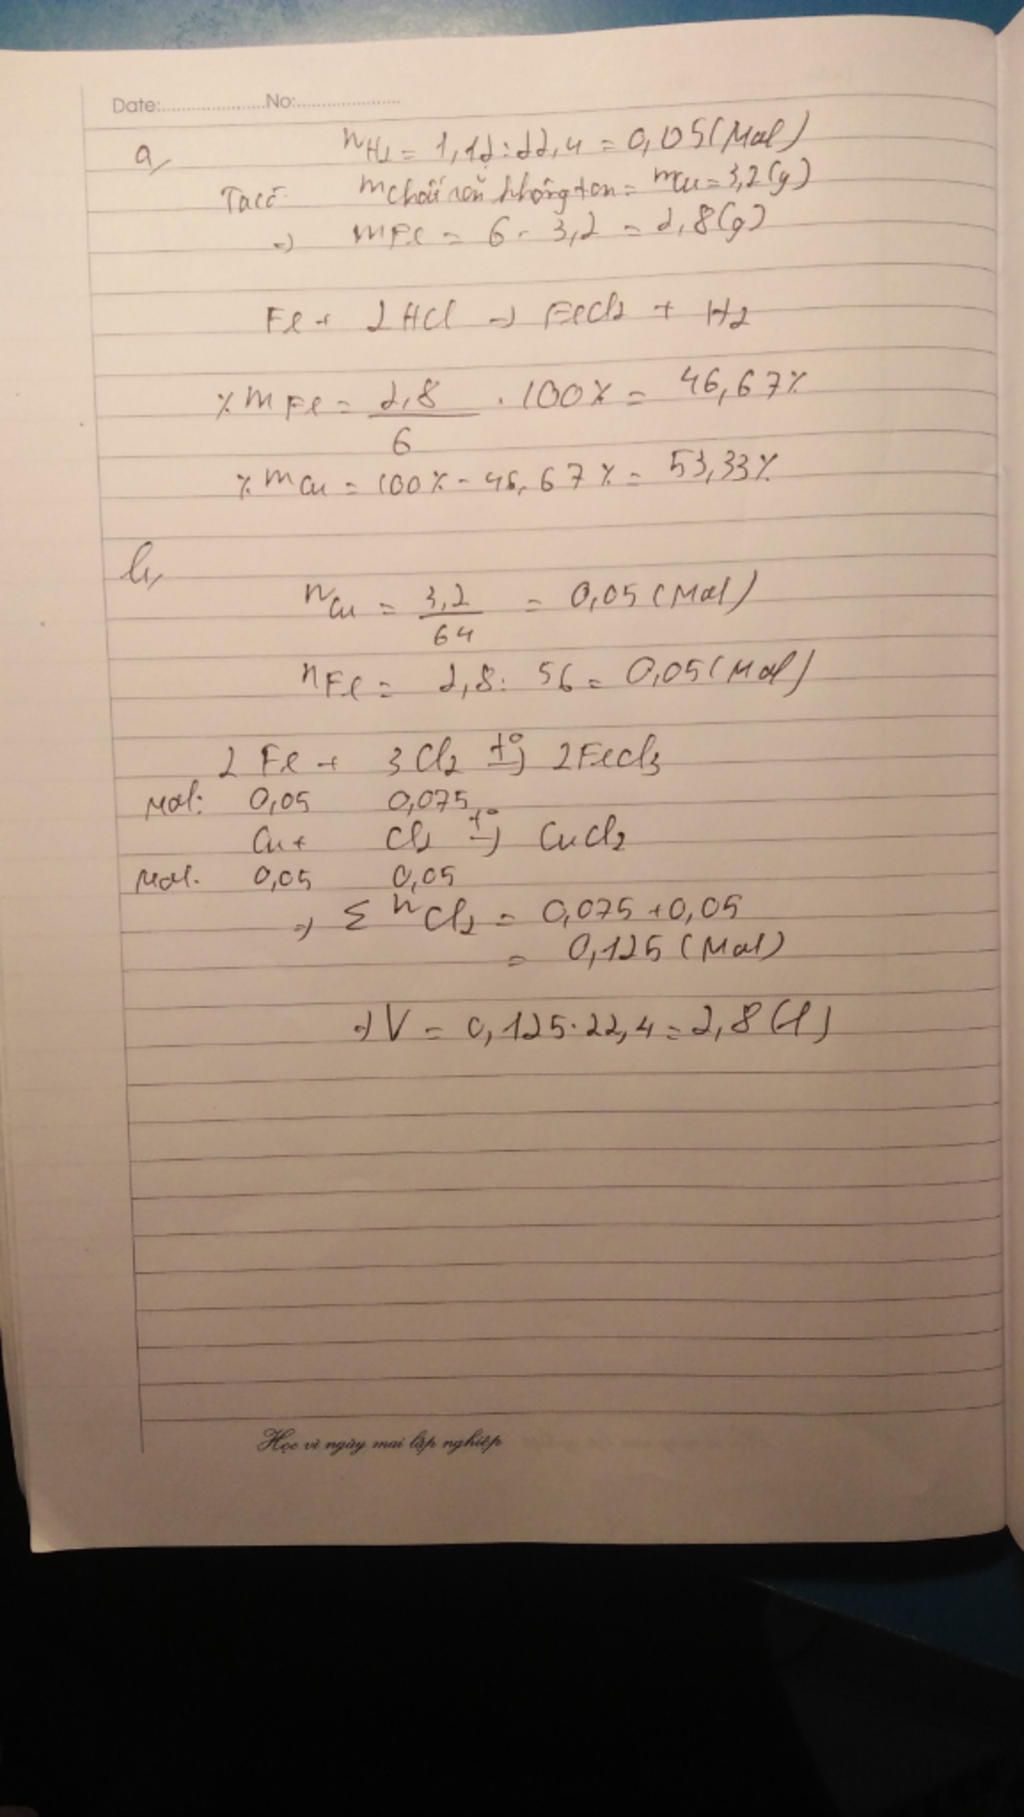 Date:.....................No:.....................
a, nH2 = 1,12 : 22,4 = 0,05 (Mol)
Ta có m chất rắn không tan = mCu = 3,2 (g)
=> mFe = 6 - 3,2 = 2,8 (g)
Fe + 2HCl -> FeCl2 + H2
% mFe = 2,8 / 6 . 100% = 46,67%
% mCu = 100% - 46,67% = 53,33%
b,
nCu = 3,2 / 64 = 0,05 (Mol)
nFe = 2,8 : 56 = 0,05 (Mol)
2Fe + 3Cl2 t°-> 2FeCl3
Mol: 0,05 0,075
Cu + Cl2 t°-> CuCl2
Mol. 0,05 0,05
=> Σ nCl2 = 0,075 + 0,05
= 0,125 (Mol)
=> V = 0,125 . 22,4 = 2,8 (l)
Học vì ngày mai lập nghiệp